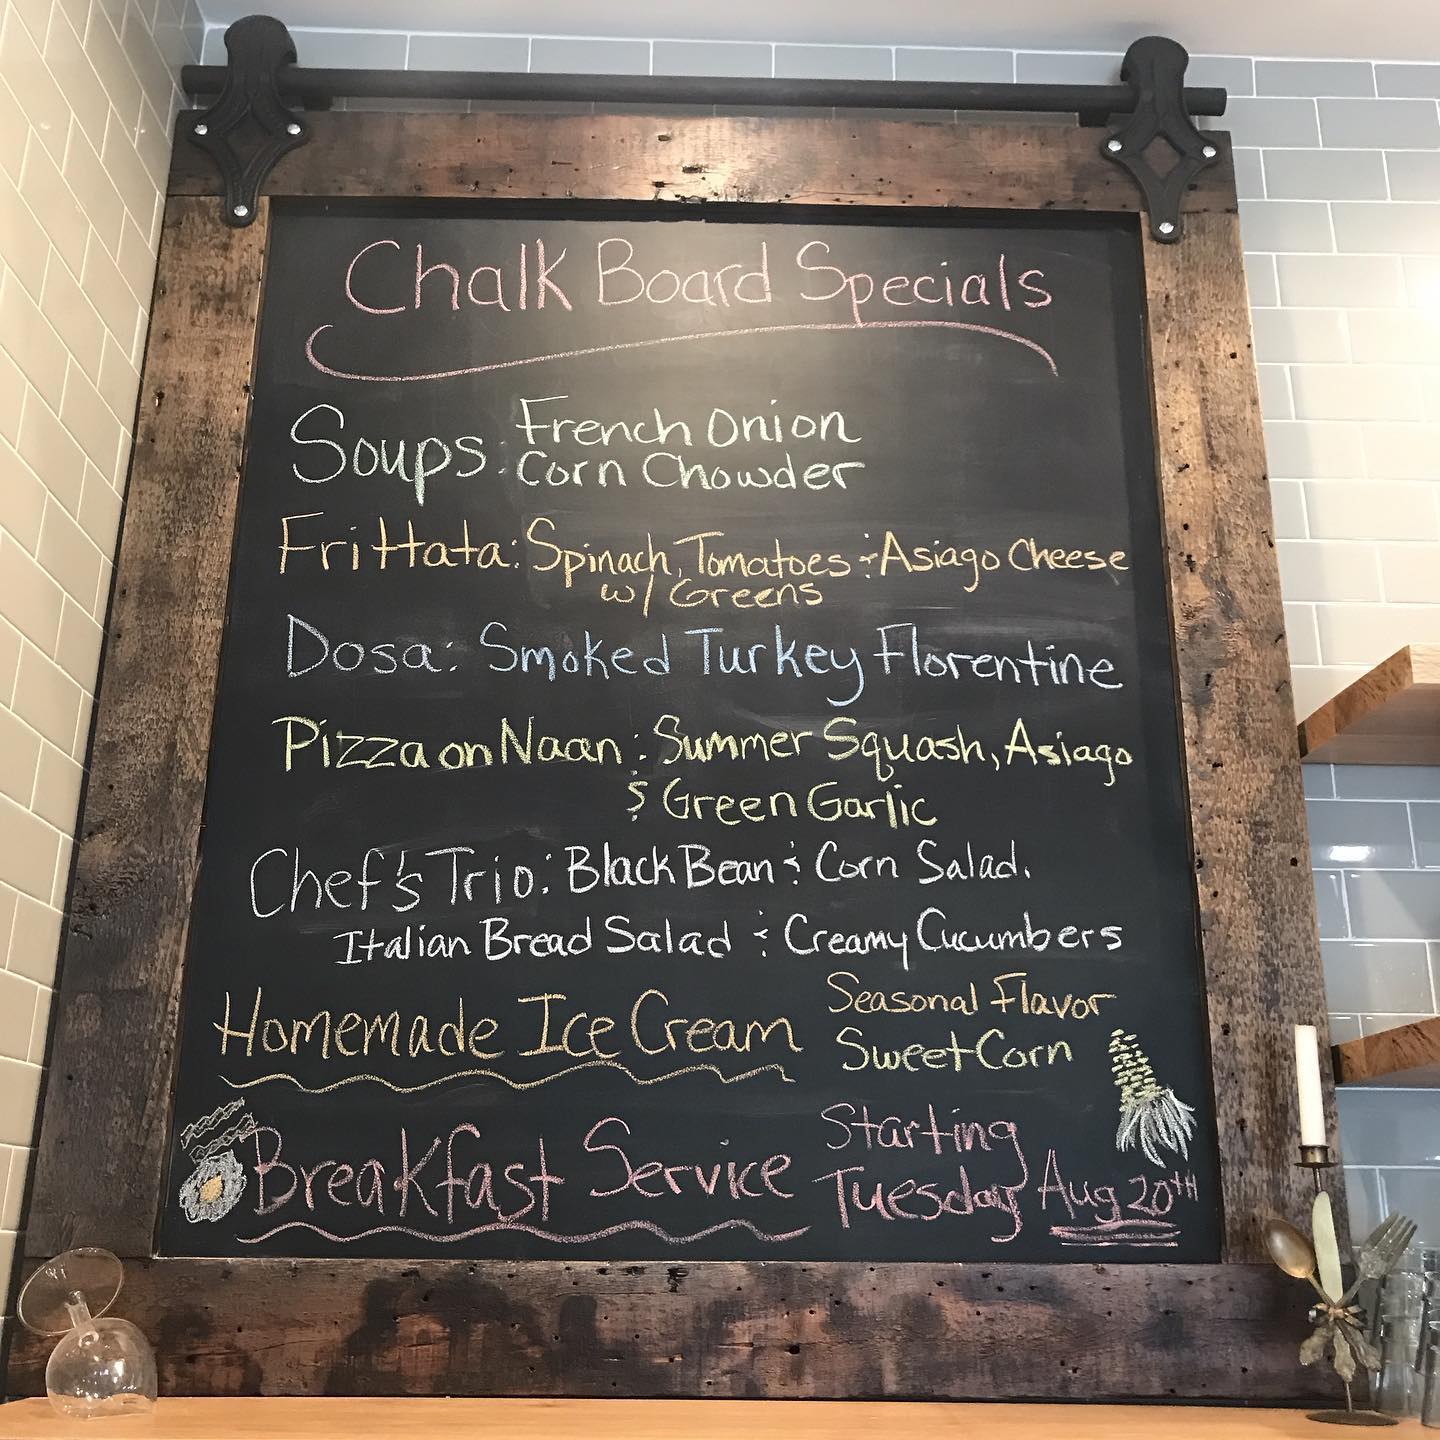 Chalk Board Specials
Soups: French Onion
Corn Chowder
Frittata: Spinach, Tomatoes & Asiago Cheese
w/ Greens
Dosa: Smoked Turkey Florentine
Pizza on Naan: Summer Squash, Asiago
& Green Garlic
Chef's Trio: Black Bean & Corn Salad.
Italian Bread Salad & Creamy Cucumbers
Homemade Ice Cream
Seasonal Flavor
Sweet Corn
Breakfast Service
Starting
Tuesday Aug 20TH